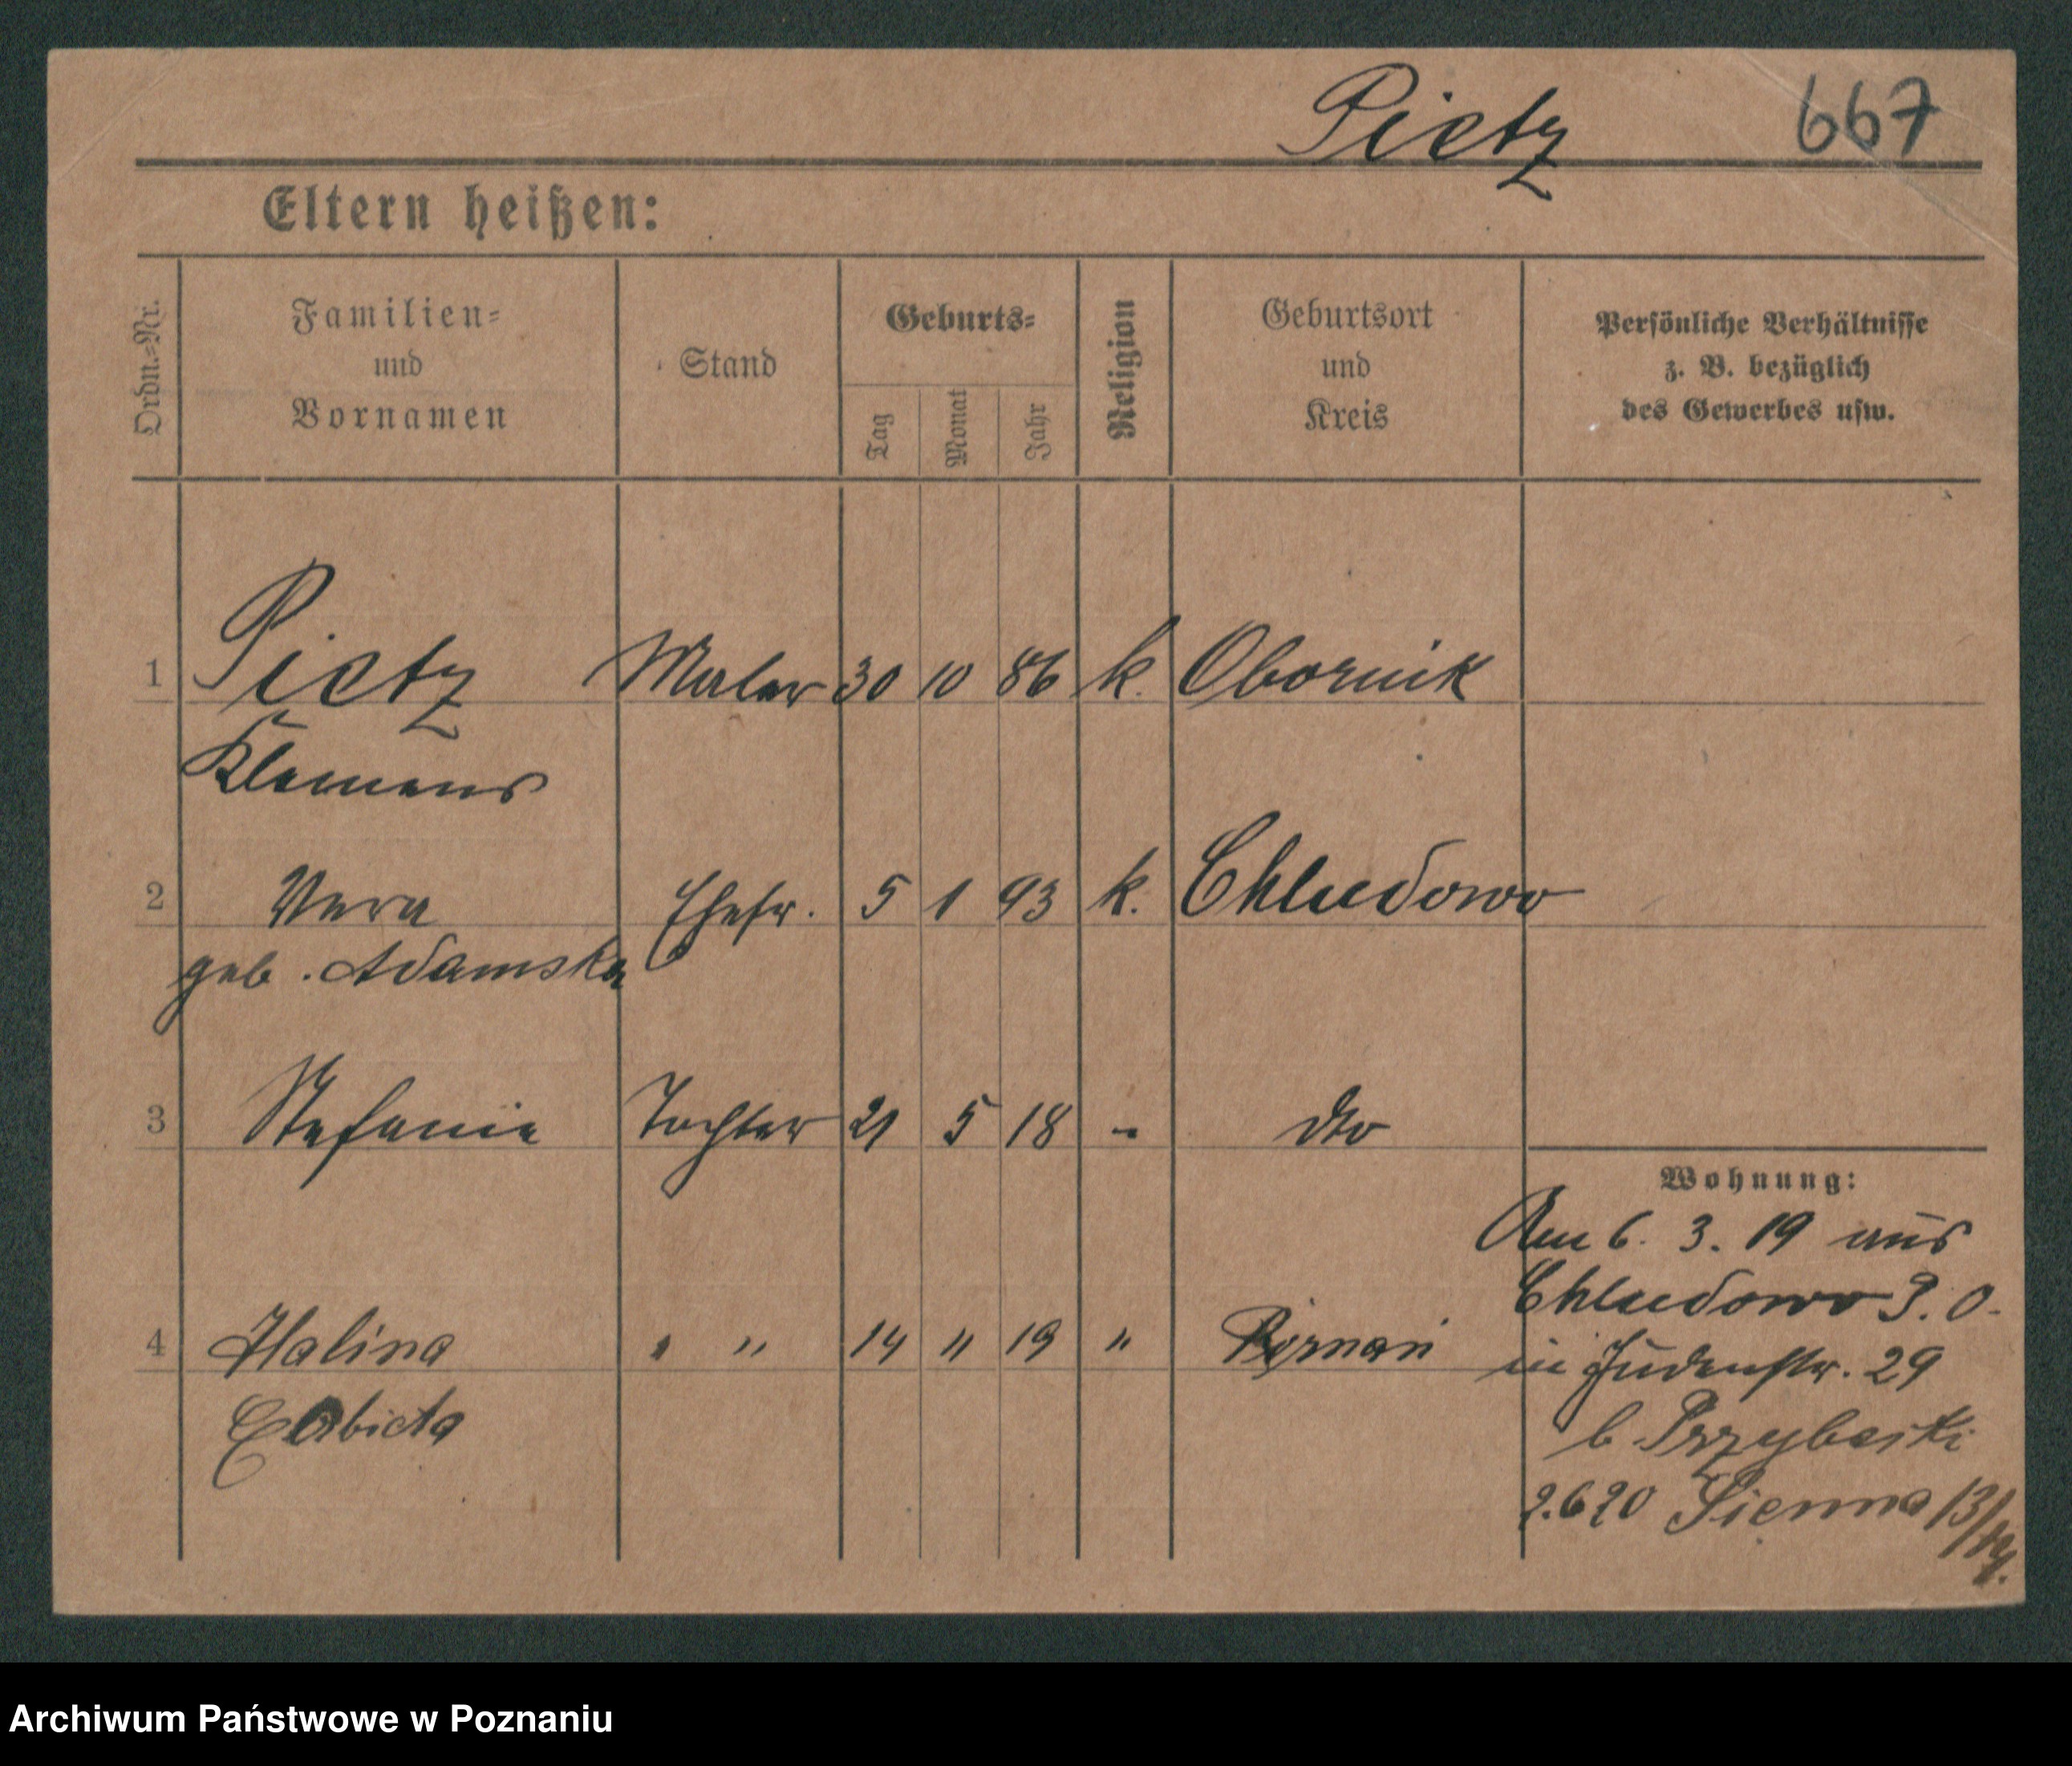 Pietz 667
Eltern heißen:
Ordn.=Nr.
Familien=
und
Vornamen
Stand
Geburts=
Tag
Monat
Jahr
Religion
Geburtsort
und
Kreis
Persönliche Verhältnisse
z. B. bezüglich
des Gewerbes usw.
1 Pietz Maler 30 10 86 k. Obornik
Klemens
2 Vera Ehefr. 5 1 93 k. Chludowo
geb. Adamska
3 Stefanie Tochter 21 5 18 - dto
Wohnung:
Am 6. 3. 19 aus
Chludowo P. O.
4 Halina " " 14 " 19 " Poznań
in Judenstr. 29
b
2.6 20 Sienna 13/14.
Archiwum Państwowe w Poznaniu